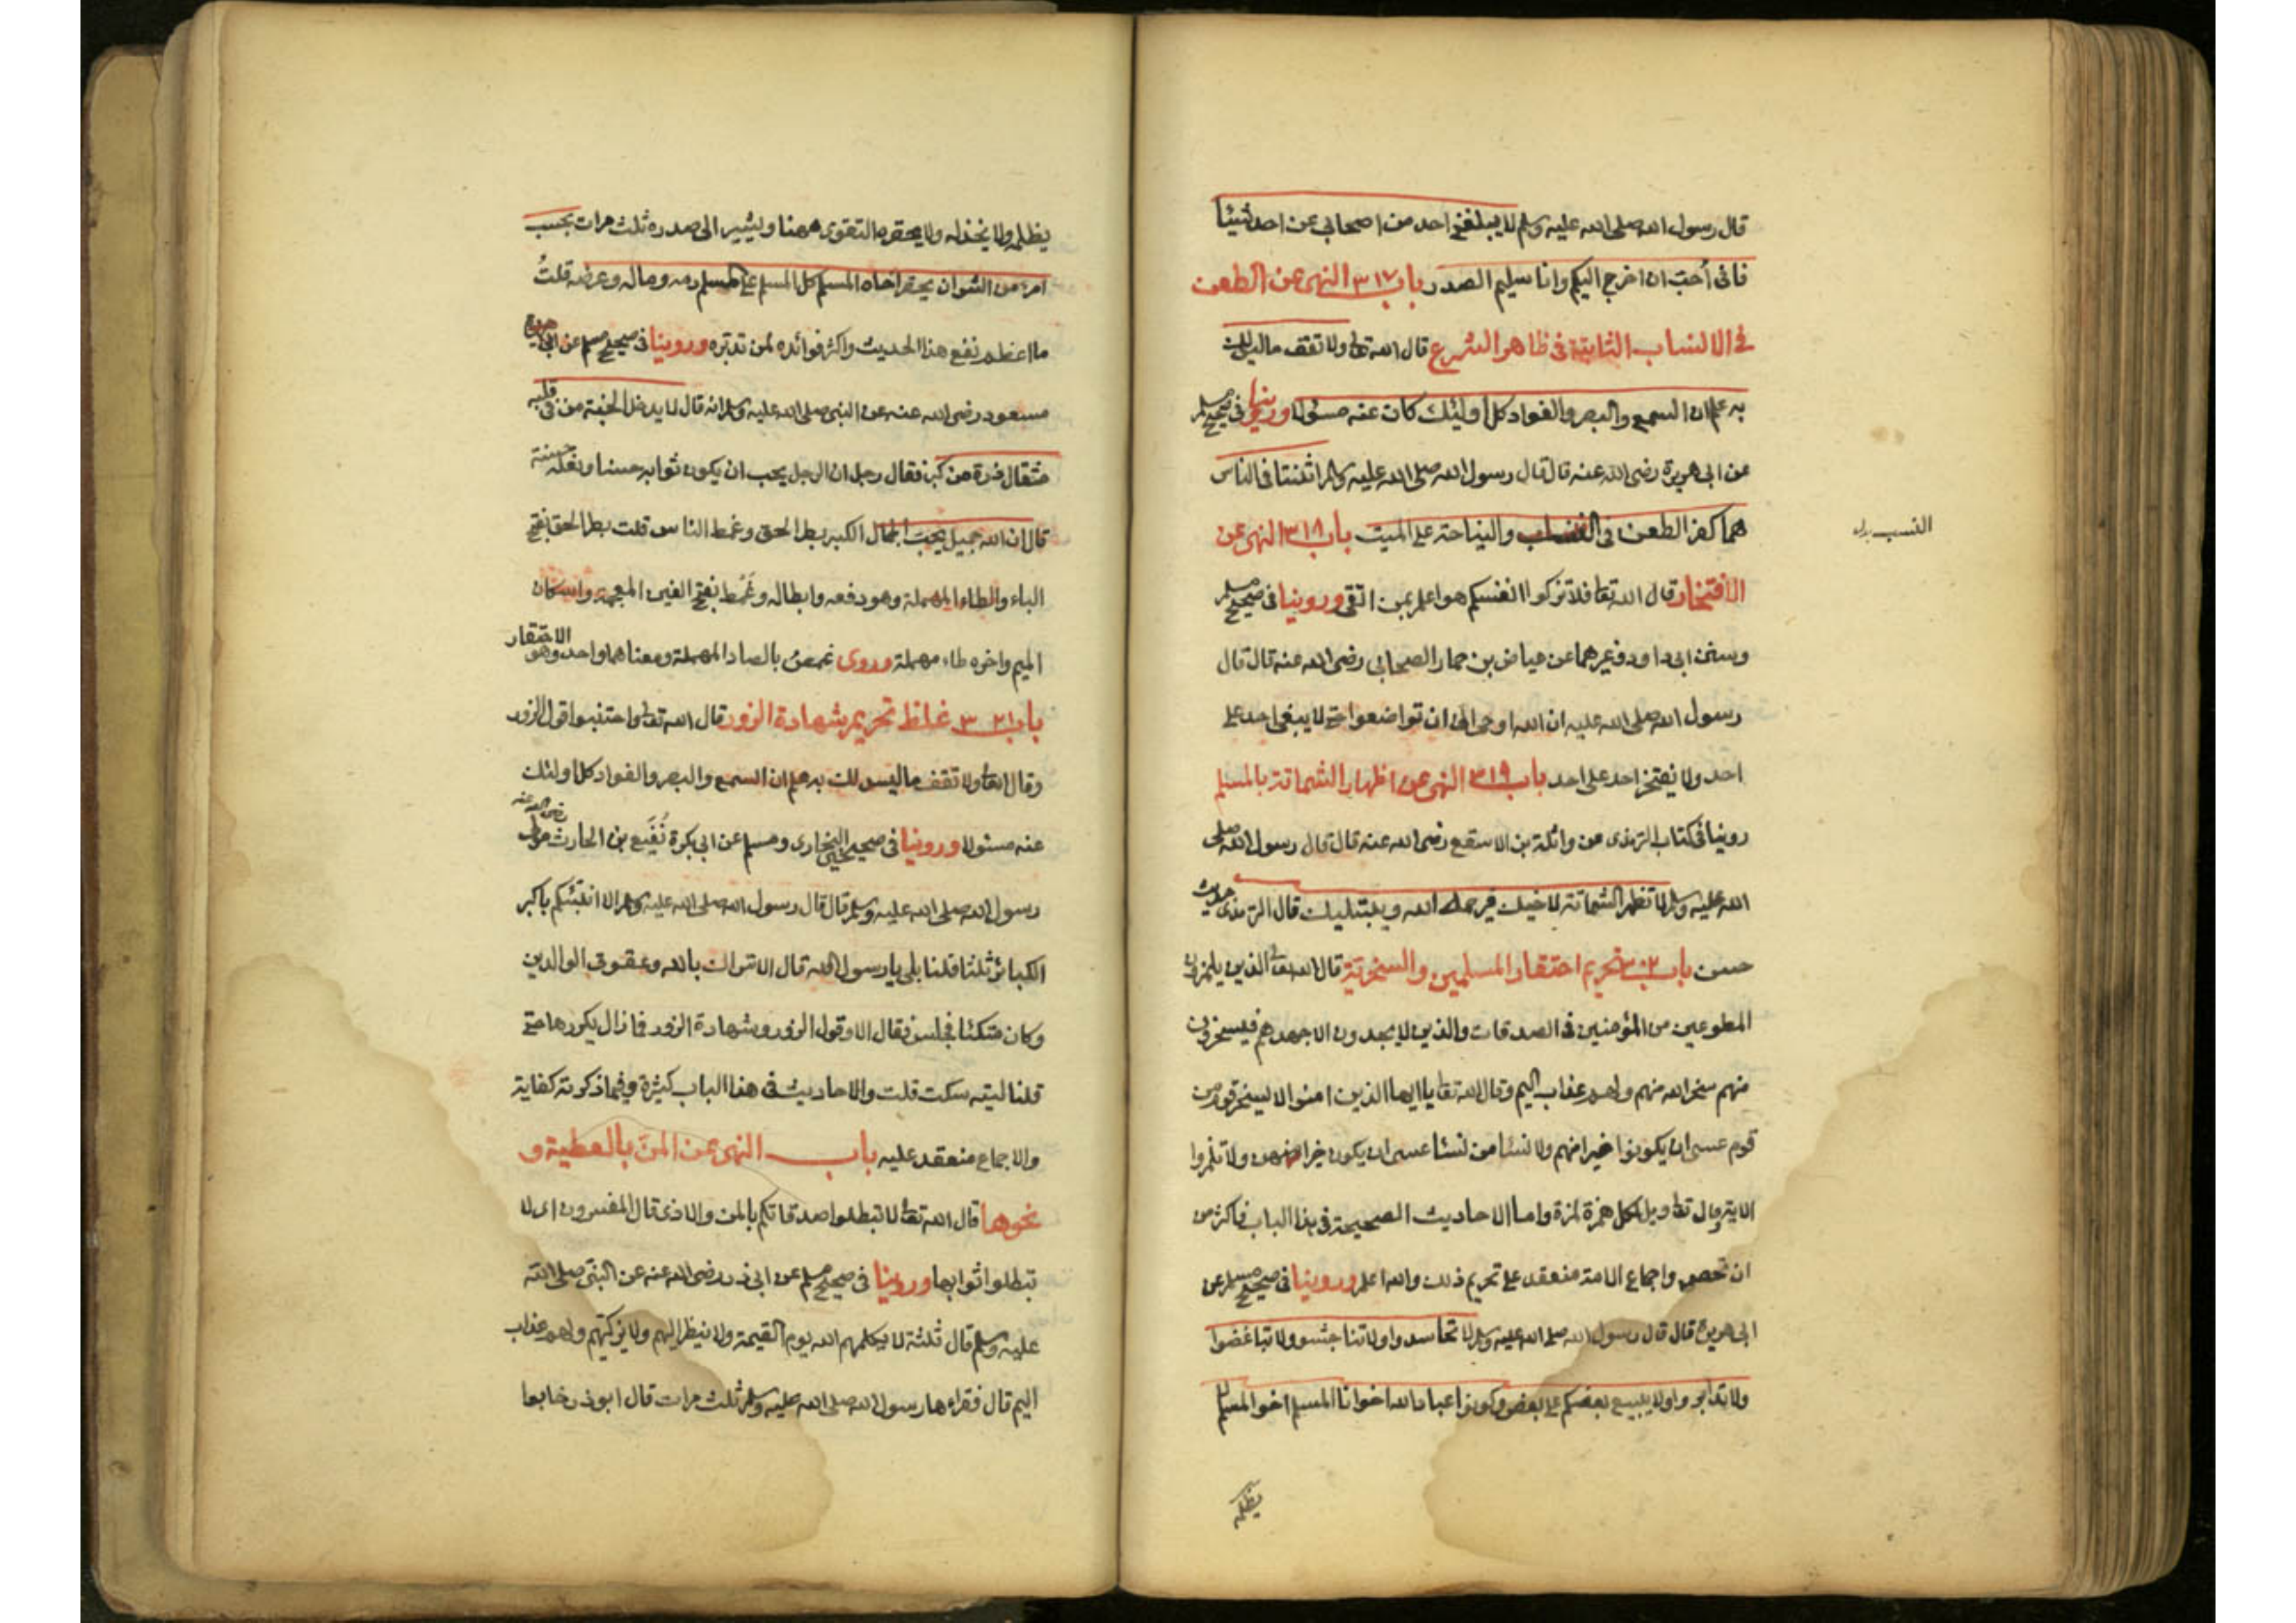 قال رسول الله صلى الله عليه وسلم لا يبلغني احد من اصحابي عن احد شيئا
فانى أحبّ ان اخرج اليكم وانا سليم الصدر باب ٣١٧ النهى عن الطعن
فى الانساب الثابتة فى ظاهر الشرع قال الله تعا ولا تقف ما ليس لك
به علم ان السمع والبصر والفواد كل اولئك كان عنه مسئولا وروينا فى صحيح مسلم
عن ابى هريرة رضى الله عنه قال قال رسول الله صلى الله عليه وسلم اثنتا فى الناس
هما كفر الطعن فى والنياحة على الميت باب ٣١٨ النهى عن
النسب بدل
الافتخار قال الله تعا فلا تزكوا انفسكم هو اعلم بمن اتقى وروينا فى صحيح مسلم
وسنن ابى داود وغيرهما عن عياض بن حمار الصحابى رضى الله عنه قال قال
رسول الله صلى الله عليه ان الله اوحى الىّ ان تواضعوا حتى لا يبغى احد على
احد ولا يفتخر احد على احد باب ٣١٩ النهى عن اظهار الشماتة بالمسلم
روينا فى كتاب الترمذى عن واثلة بن الاسقع رضى الله عنه قال قال رسول الله صلى
الله عليه وسلم لا تظهر الشماتة لاخيك فيرحمه الله ويبتليك قال الترمذى حديث
حسن باب ٣٢٠ تحريم احتقار المسلمين والسخرية قال الله تعا الذين يلمزون
المطوعين من المؤمنين فى الصدقات والذين لا يجدون الا جهدهم فيسخرون
منهم سخر الله منهم ولهم عذاب اليم وقال الله تعا يا ايها الذين امنوا لا يسخر قوم من
قوم عسى ان يكونوا خيرا منهم ولا نسا من نسا عسى ان يكون خيرا منهن ولا تلمزوا
الاية وقال تعا ويل لكل همزة لمزة واما الاحاديث الصحيحة فى هذا الباب فاكثر من
ان تحصى واجماع الامة منعقد على تحريم ذلك والله اعلم وروينا فى صحيح مسلم عن
ابى هريرة قال قال رسول الله صلى الله عليه وسلم لا تحاسدوا ولا تناجشو ولا تباغضوا
ولا تدابروا ولا يبيع بعضكم على بعض وكونوا عباد الله اخوانا المسلم اخو المسلم لا
يظلمه
يظلمه ولا يخذله ولا يحقره التقوى ههنا ويشير الى صدره ثلث مرات بحسب
امرء من الشر ان يحقر اخاه المسلم كل المسلم على المسلم دمه وماله وعرضه قلتُ
ما اعظم نفع هذا الحديث واكثر فوائده لمن تدبّره وروينا فى صحيح مسلم عن ابن
مسعود رضى الله عنه عن النبى صلى الله عليه وسلم انه قال لا يدخل الجنة من فى قلبه
مثقال ذرة من كبر فقال رجل ان الرجل يحب ان يكون ثوابه حسنا ونعله حسنة
قال ان الله جميل يحبّ الجمال الكبر بطر الحق وغمط الناس قلت بطر الحق بفتح
الباء والطاء المهملة وهو دفعه وابطاله وغَمْط بفتح الغين المعجمة واسكان
الميم واخره طاء مهملة وروى غمص بالصاد المهملة ومعناهما واحد وهو الاحتقار
باب ٣٢١ غلظ تحريم شهادة الزور قال الله تعا واجتنبوا قول الزور
وقال تعا ولا تقف ما ليس لك به علم ان السمع والبصر والفواد كل اولئك
عنه مسئولا وروينا فى صحيحى البخارى ومسلم عن ابى بكرة نُفَيع بن الحارث رضى الله عنه
رسول الله صلى الله عليه وسلم قال قال رسول الله صلى الله عليه وسلم الا انبئكم باكبر
الكبائر ثلثا قلنا بلى يا رسول الله قال الاشراك بالله وعقوق الوالدين
وكان متكئا فجلس فقال الا وقول الزور وشهادة الزور فما زال يكررها حتى
قلنا ليته سكت قلت والاحاديث فى هذا الباب كثيرة وفيما ذكرته كفاية
والاجماع منعقد عليه باب النهى عن المنّ بالعطية و
نحوها قال الله تعا لا تبطلوا صدقاتكم بالمن والاذى قال المفسرون اى لا
تبطلوا ثوابها وروينا فى صحيح مسلم عن ابى ذر رضى الله عنه عن النبى صلى الله
عليه وسلم قال ثلثة لا يكلمهم الله يوم القيمة ولا ينظر اليهم ولا يزكيهم ولهم عذاب
اليم قال فقراءها رسول الله صلى الله عليه وسلم ثلث مرات قال ابو ذر خابوا